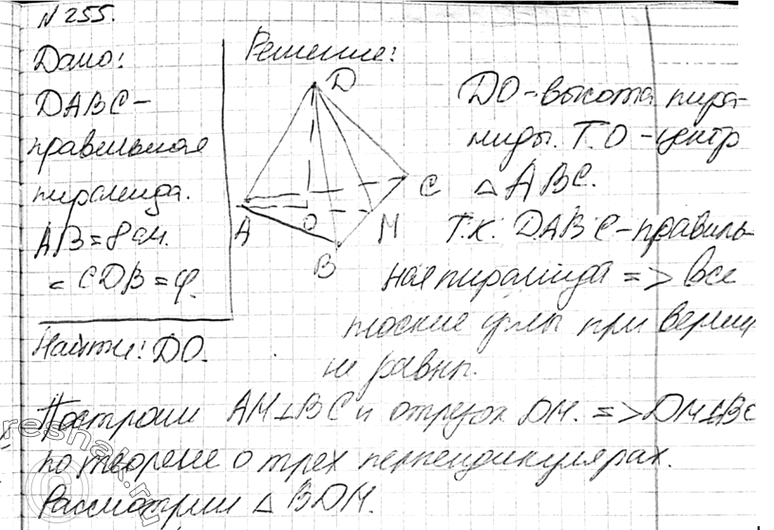 № 255.
Дано:
DABC-
правильная
пирамида.
AB=8 см.
∠ CDB=φ.
Найти: DO.
Решение:
D
A
O
B
M
C
DO-высота пира-
миды. Т.О-центр
△ABC.
Т.к. DABC-правиль-
ная пирамида => все
плоские углы при верши
не равны.
Построим AM⊥BC и отрезок DM. => DM⊥BC
по теореме о трех перпендикулярах.
Рассмотрим △ BDM.
reshak.ru